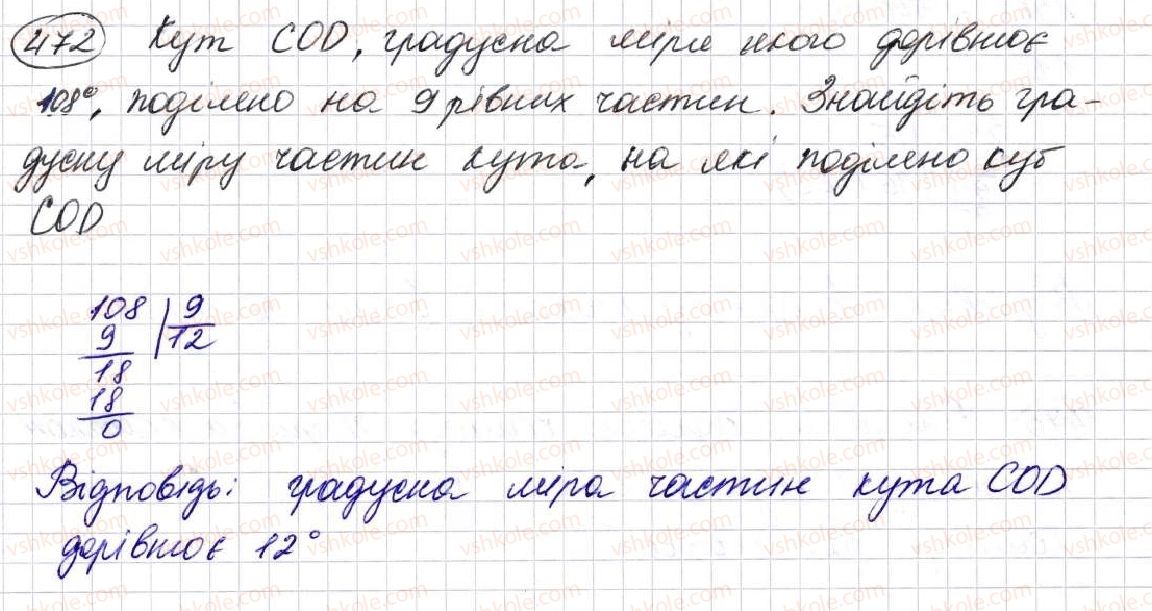 472 Кут COD, градусна міра якого дорівнює
108°, поділено на 9 рівних частин. Знайдіть гра-
дусну міру частин кута, на які поділено кут
COD
108 | 9
9 12
18
18
0
Відповідь: градусна міра частин кута COD
дорівнює 12°